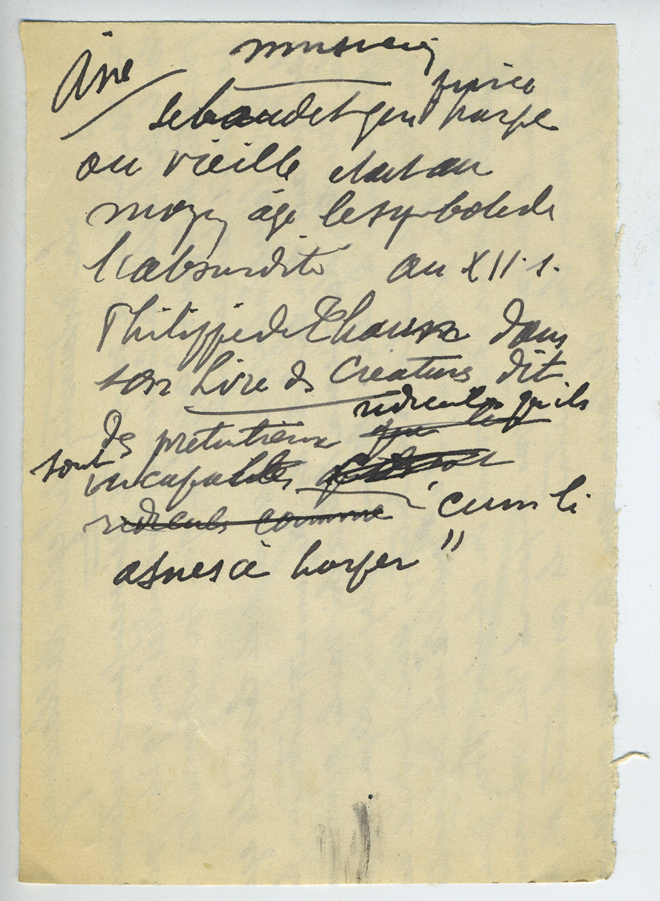 Âne musicien
pince
le baudet qui harpe
ou vieille etait au
moyen âge le symbole de
l'absurdité au XII. s.
Philippe de Thaun dans
son Livre des Creatures dit
ridicules qu'ils
des pretentieux que les
sont incapables
ridicules comme "cum li
asnes à harper"